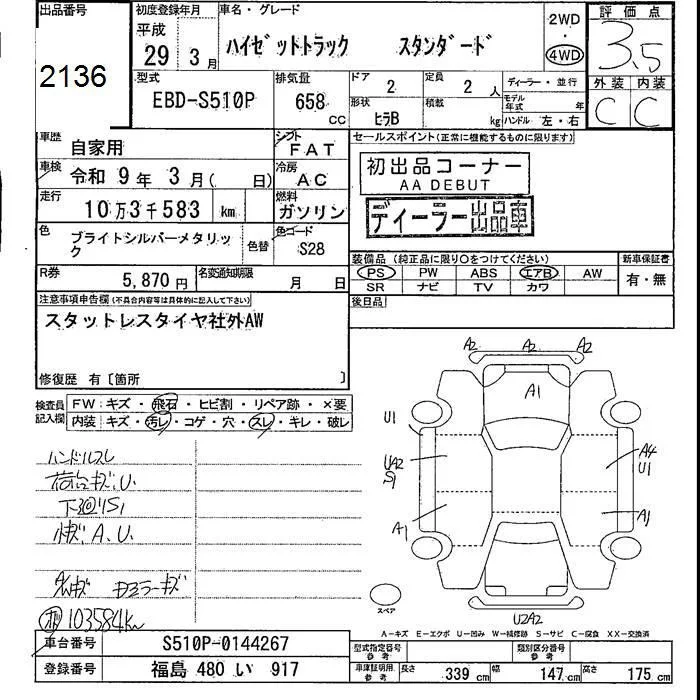 出品番号
2136
初度登録年月
平成
29年 3月
車名・グレード
ハイゼットトラック スタンダード
2WD
・
4WD
評価点
3.5
外装 内装
C C
型式
EBD-S510P
排気量
658 CC
ドア
2
定員
2 人
形状
ヒラB
積載
kg
ディーラー・並行
モデル年式 年
ハンドル 左・右
車歴
自家用
シフト
FAT
車検
令和 9年 3月( 日)
冷房
AC
走行
10万3千583 km
燃料
ガソリン
色
ブライトシルバーメタリック
色替
色コード
S28
R券
5,870円
名変通知期限
月 日
セールスポイント(正常に機能するものに限ります)
初出品コーナー
AA DEBUT
ディーラー出品車
装備品 (純正品に限り○をつけてください)
PS PW ABS エアB AW
SR ナビ TV カワ
新車保証書
有・無
後日品
注意事項申告欄(不具合内容等は具体的に記入して下さい)
スタットレスタイヤ社外AW
修復歴 有〔箇所 〕
検査員記入欄
FW: キズ・飛石・ヒビ割・リペア跡・×要
内装: キズ・汚レ・コゲ・穴・スレ・キレ・破レ
ハンドルスレ
荷台キズ,U.
下廻りS1
小キズ A.U.
103584km
A2 A2 A2
A1
U1
UA2
S1
A4
U1
A1
A1
U2A2
スペア
A-キズ E-エクボ U-凹み W-補修跡 S-サビ C-腐食 XX-交換済
車台番号
S510P-0144267
登録番号
福島 480 い 917
型式指定番号 参考
類別区分番号 参考
車庫証明用 参考
長さ 339 cm
幅 147 cm
高さ 175 cm